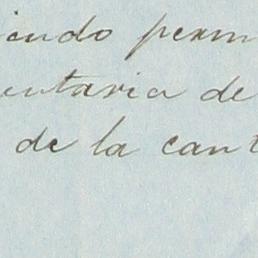 iendo perm
entaria de
de la cant